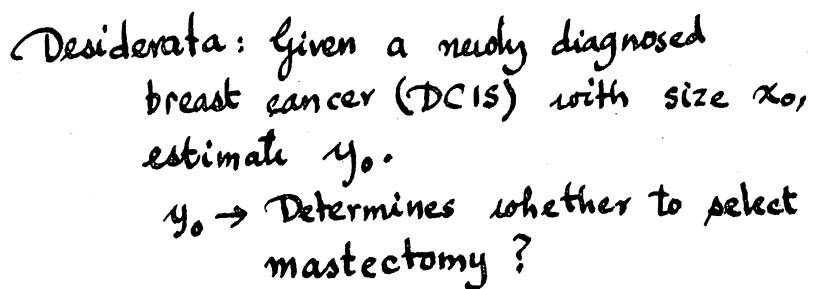 Desiderata: Given a newly diagnosed
breast cancer (DCIS) with size x₀,
estimate y₀.
y₀ → Determines whether to select
mastectomy?